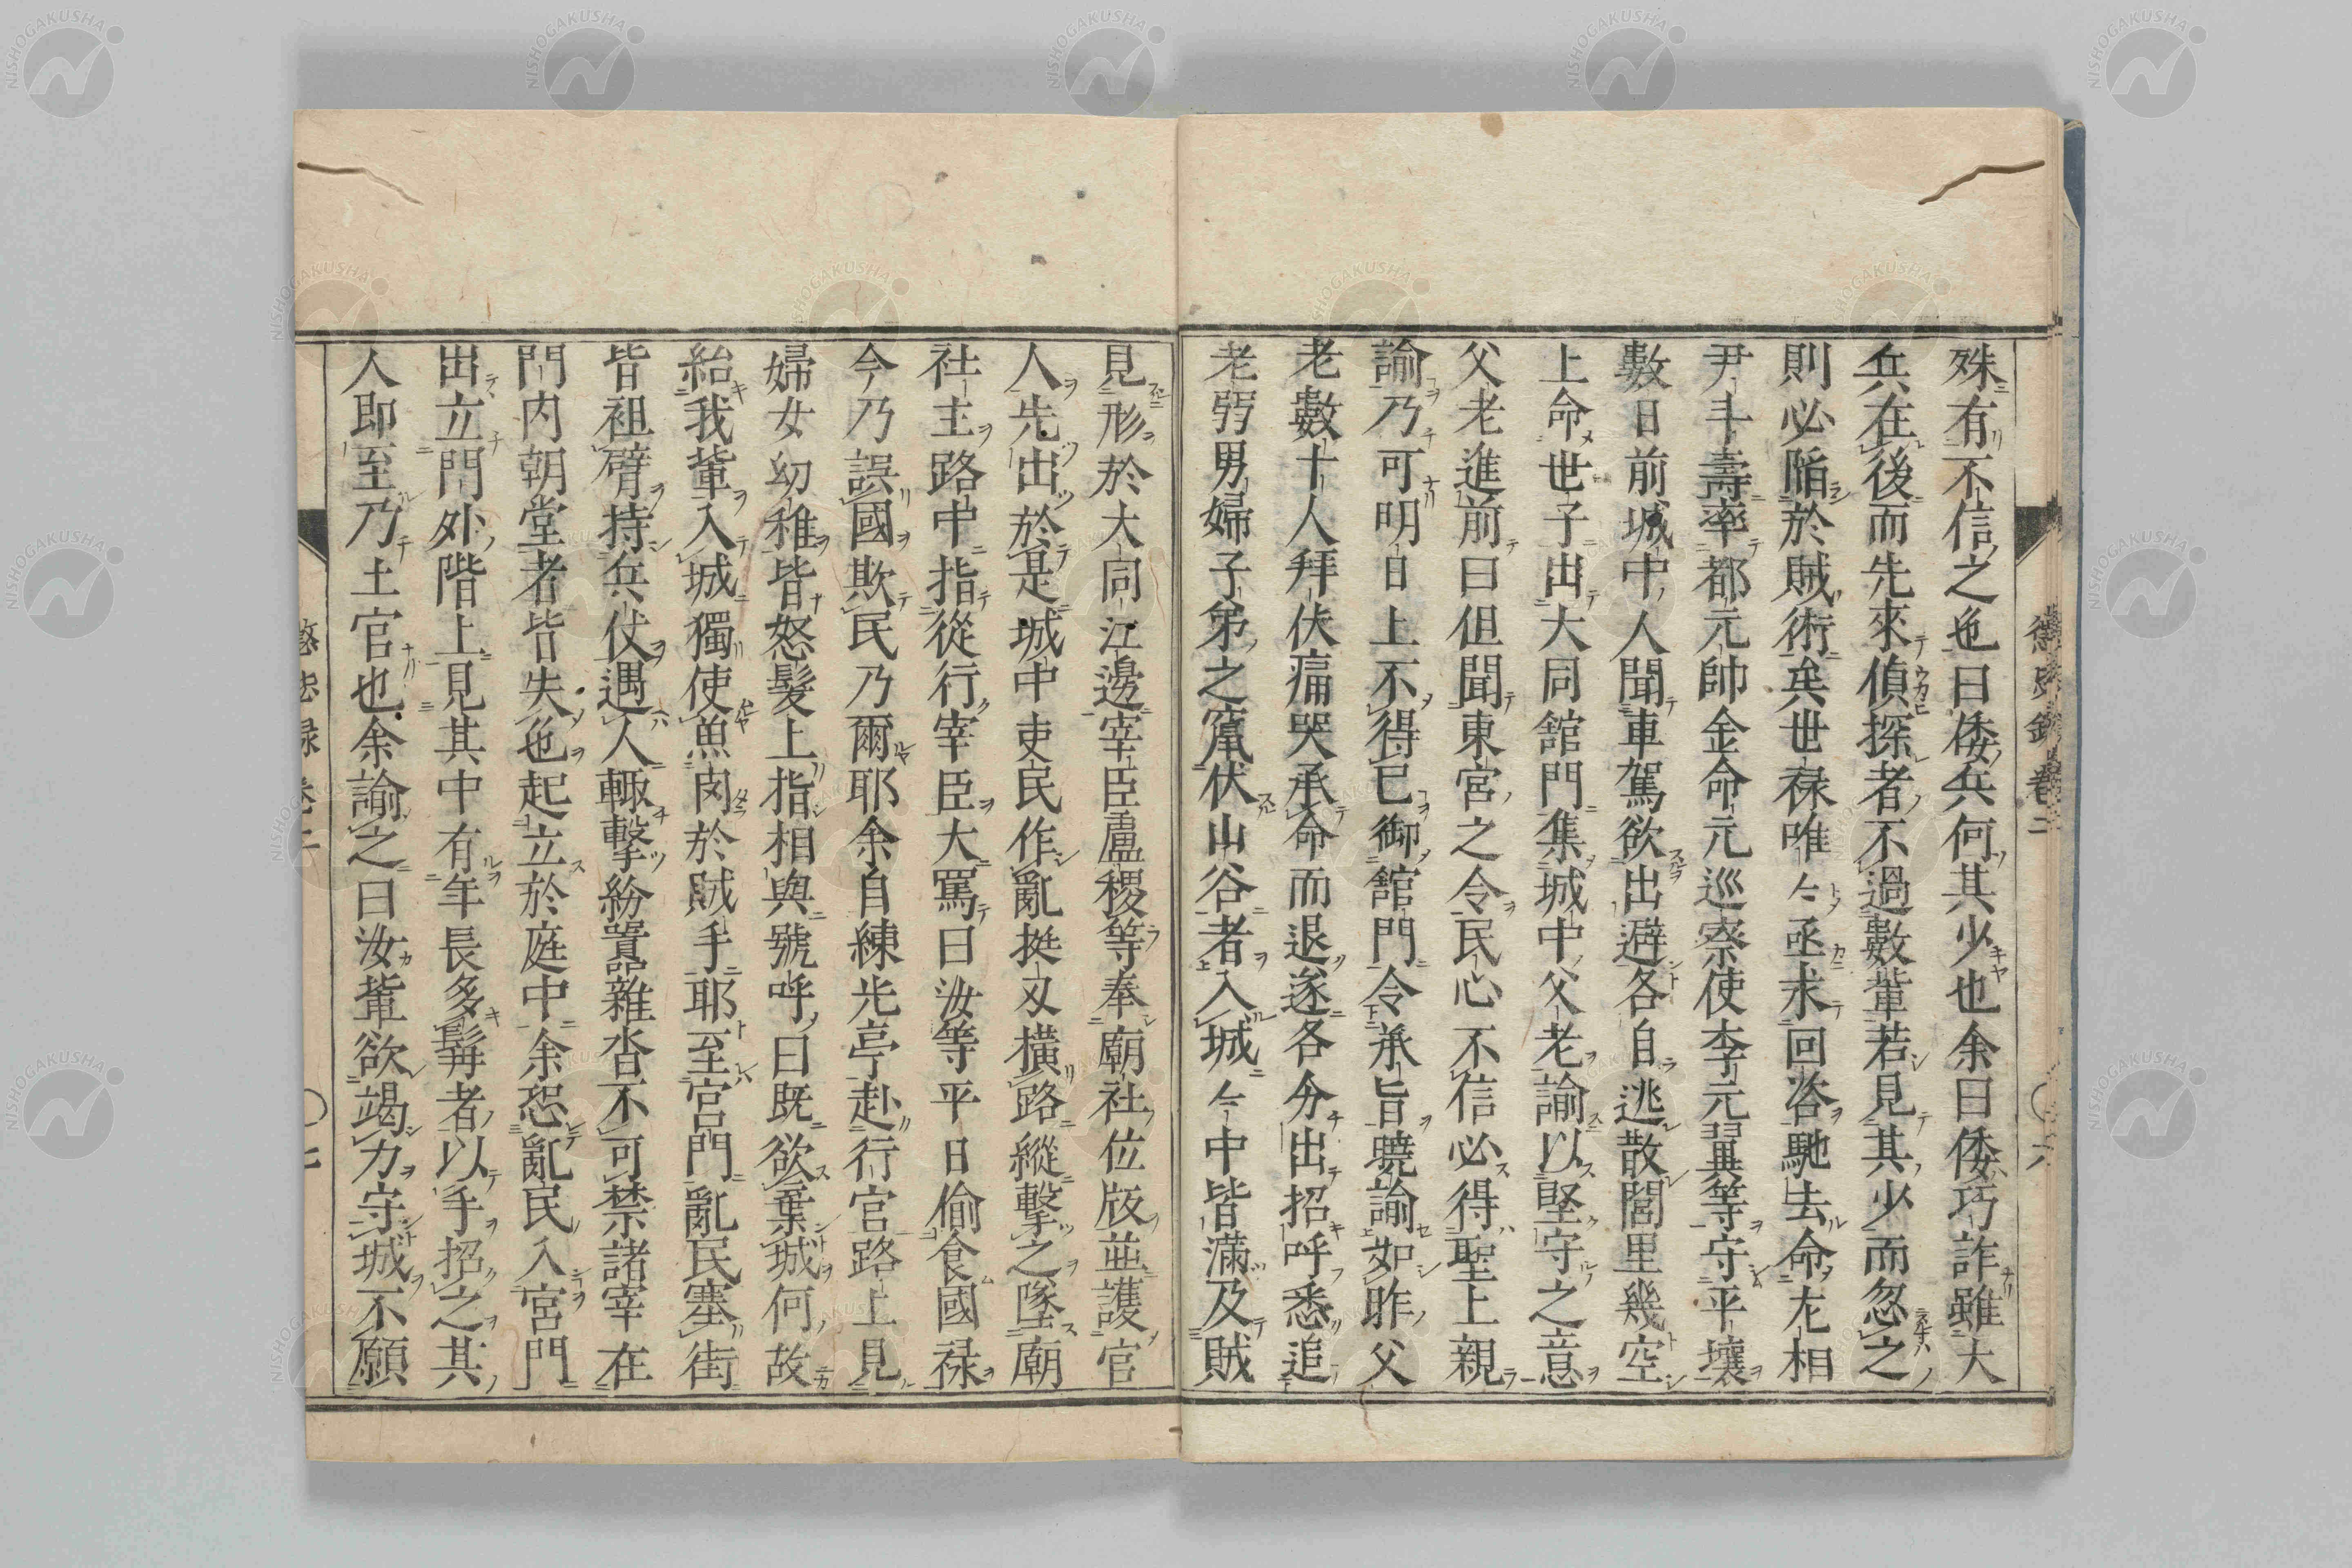 懲毖錄卷二 〇六
殊有不信之色曰倭兵何其少也余曰倭巧詐雖大
兵在後而先來偵探者不過數輩若見其少而忽之
則必陷於賊術矣世祿唯々亟求回咨馳去命左相
尹斗壽率都元帥金命元巡察使李元翼等守平壤
數日前城中人聞車駕欲出避各自逃散閭里幾空
上命世子出大同館門集城中父老諭以堅守之意
父老進前曰但聞東宮之令民心不信必得聖上親
諭乃可明日上不得已御館門令承旨曉諭如昨父
老數十人拜伏痛哭承命而退遂各分出招呼悉追
老弱男婦子弟之竄伏山谷者入城々中皆滿及賊
見形於大同江邊宰臣盧稷等奉廟社位版並護官
人先出於是城中吏民作亂挺刃橫路縱擊之墜廟
社主路中指從行宰臣大罵曰汝等平日偷食國祿
今乃誤國欺民乃爾耶余自練光亭赴行宮路上見
婦女幼稚皆怒髮上指相與號呼曰既欲棄城何故
紿我輩入城獨使魚肉於賊手耶至宮門亂民塞街
皆袒臂持兵仗遇人輒擊紛囂雜沓不可禁諸宰在
門內朝堂者皆失色起立於庭中余恐亂民入宮門
出立門外階上見其中有年長多髯者以手招之其
人即至乃土官也余諭之曰汝輩欲竭力守城不願
懲毖録卷二 〇七
NISHOGAKUSHA